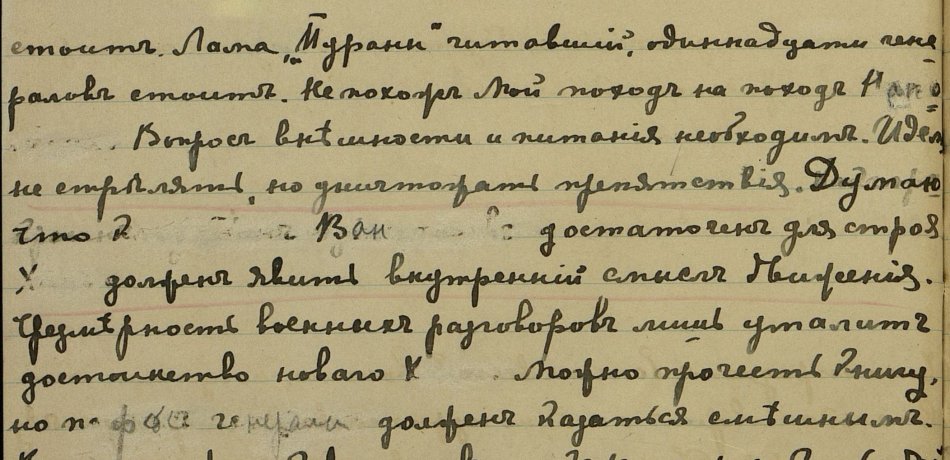 стоитъ. Лама, "Тураны" читавшій, одиннадцати гене-
раловъ стоитъ. Не похожъ Мой походъ на походъ
Вопросъ внѣшности и питанія необходимъ. Идемъ
не стрѣлять, но уничтожать препятствія. Думаю
что достаточенъ для строя
Х долженъ явить внутренній смыслъ движенія.
Чрезмѣрность военныхъ разговоровъ лишь умалитъ
достоинство новаго Х . Можно прочесть книгу,
но долженъ казаться смѣшнымъ.